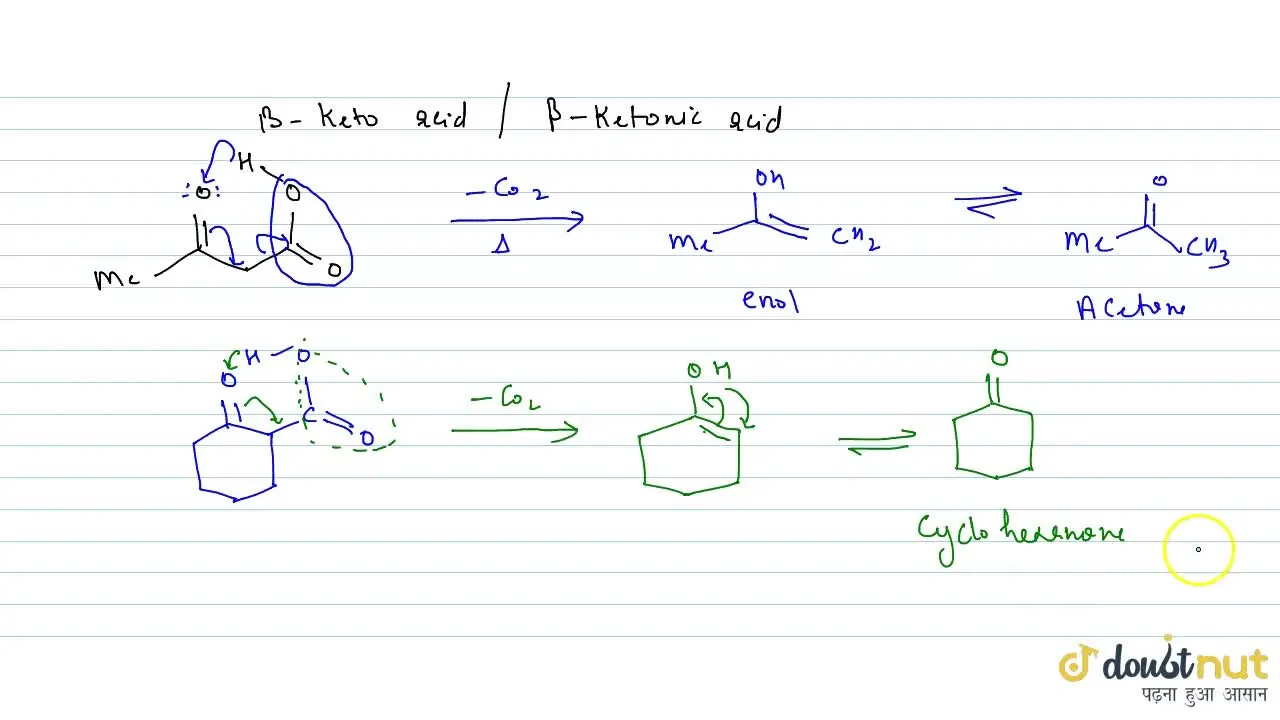 β - Keto acid / β - Ketonic acid
H
:O: O - CO2 OH O
Me O Δ Me CH2 Me CH3
enol Acetone
H - O
O C O - CO2 OH O
Cyclohexanone
doubtnut
पढ़ना हुआ आसान